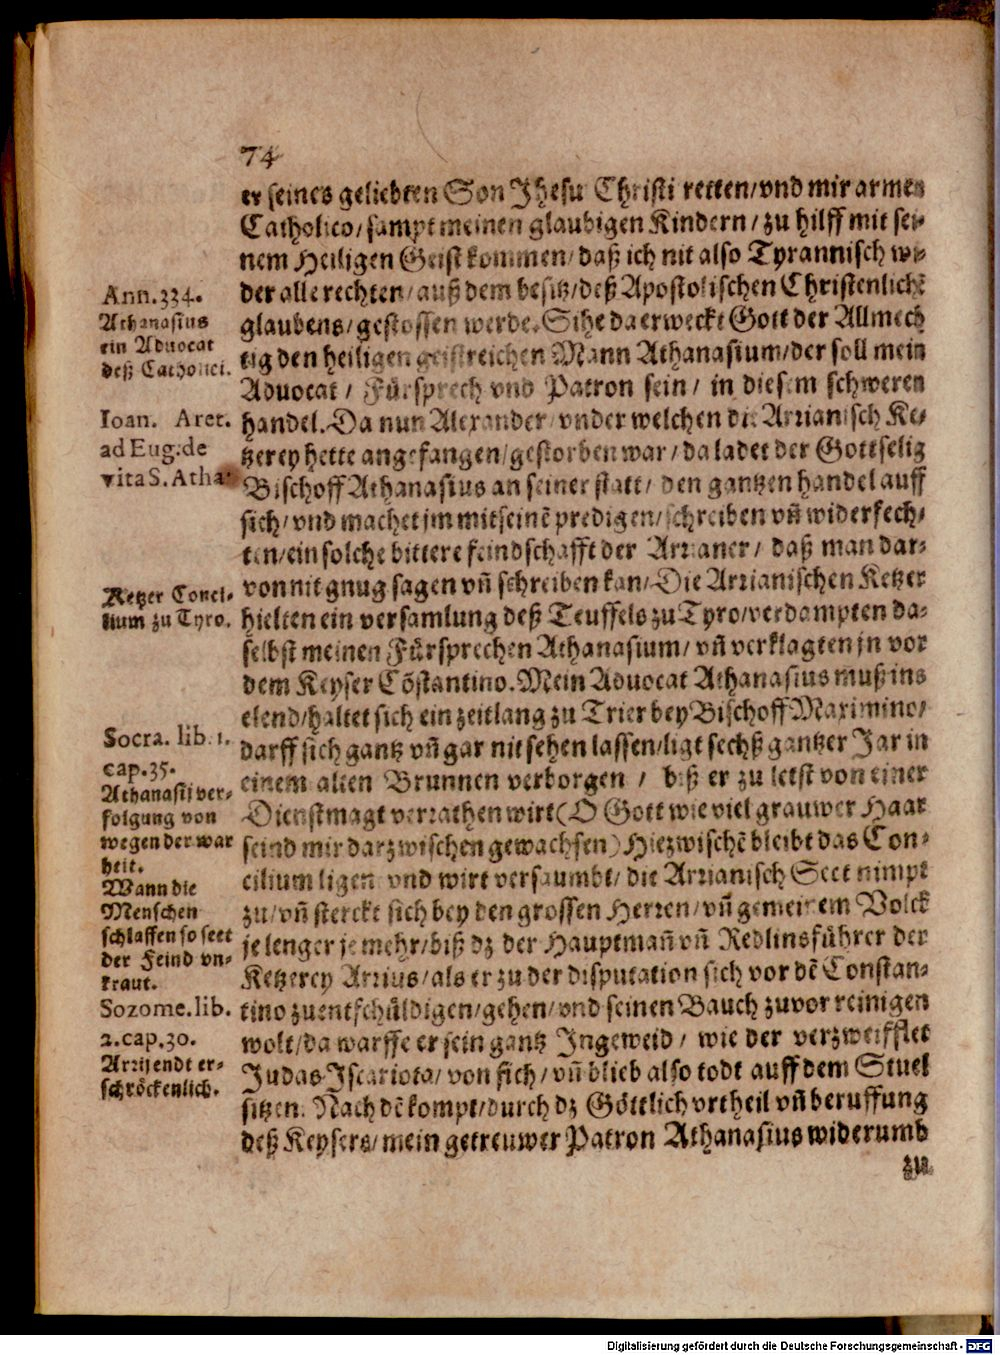 74
er seines geliebten Son Jhesu Christi retten/vnd mir armen
Catholico/sampt meinen glaubigen Kindern/zu hilff mit sei-
nem Heiligen Geist kommen/daß ich nit also Tyrannisch wi-
der alle rechten/auß dem besitz/deß Apostolischen Christenlichẽ
glaubens/gestossen werde. Sihe da erweckt Gott der Allmech
tig den heiligen geistreichen Mann Athanasium/der soll mein
Aduocat/ Fürsprech vnd Patron sein/ in diesem schweren
handel. Da nun Alexander/vnder welchen die Arrianisch Ke-
tzerey hette angefangen/gestorben war/da ladet der Gottselig
Bischoff Athanasius an seiner statt/ den gantzen handel auff
sich/vnd machet jm mit seinẽ predigen/schreiben vñ widerfech-
ten/ein solche bittere feindschafft der Arrianer/ daß man dar-
von nit gnug sagen vñ schreiben kan/Die Arrianischen Ketzer
hielten ein versamlung deß Teuffels zu Tyro/verdampten da-
selbst meinen Fürsprechen Athanasium/vñ verklagten jn vor
dem Keyser Cõstantino. Mein Aduocat Athanasius muß ins
elend/haltet sich ein zeitlang zu Trier bey Bischoff Maximino/
darff sich gantz vñ gar nit sehen lassen/ligt sechß gantzer Jar in
einem alten Brunnen verborgen / biß er zu letst von einer
Dienstmagt verrathen wirt(O Gott wie viel grauwer Haar
seind mir darzwischen gewachsen) Hiezwischẽ bleibt das Con-
cilium ligen vnd wirt versaumbt/die Arrianisch Sect nimpt
zu/vñ sterckt sich bey den grossen Herren/vñ gemeinem Volck
je lenger je mehr/biß dz der Hauptmañ vñ Redlinsführer der
Ketzerey Arrius/als er zu der disputation sich vor dẽ Constan-
tino zuentschüldigen/gehen/vnd seinen Bauch zuvor reinigen
wolt/da warffe er sein gantz Ingeweid/ wie der verzweifflet
Judas Iscariota/von sich/vñ blieb also todt auff dem Stuel
sitzen. Nach dẽ kompt/durch dz Göttlich vrtheil vñ beruffung
deß Keysers/mein getreuwer Patron Athanasius widerumb
zu
Ann.334.
Athanasius
ein Aduocat
deß Catholici.
Ioan. Aret.
ad Eug.de
vita S. Atha.
Ketzer Conci-
lium zu Tyro.
Socra. lib. 1.
cap.35.
Athanasij ver-
folgung von
wegen der war
heit.
Wann die
Menschen
schlaffen so seet
der Feind vn-
kraut.
Sozome.lib.
2.cap.30.
Arrij endt er-
schröckenlich.
Digitalisierung gefördert durch die Deutsche Forschungsgemeinschaft - DFG